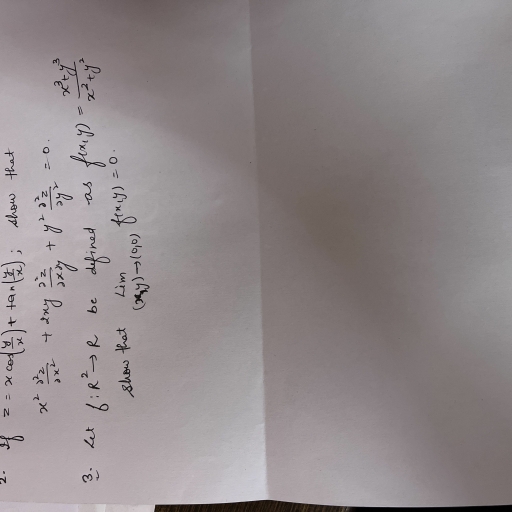 2. If z = x cos(y/x) + tan(y/x); show that
x² ∂²z/∂x² + 2xy ∂²z/∂x∂y + y² ∂²z/∂y² = 0.
3. Let f: R² → R be defined as f(x,y) = x³+y³/x²+y²
show that Lim (x,y)→(0,0) f(x,y) = 0.